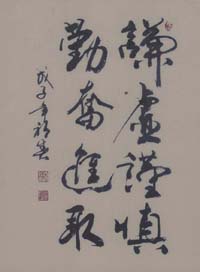 謙虛謹慎
勤奮進取
戊子年